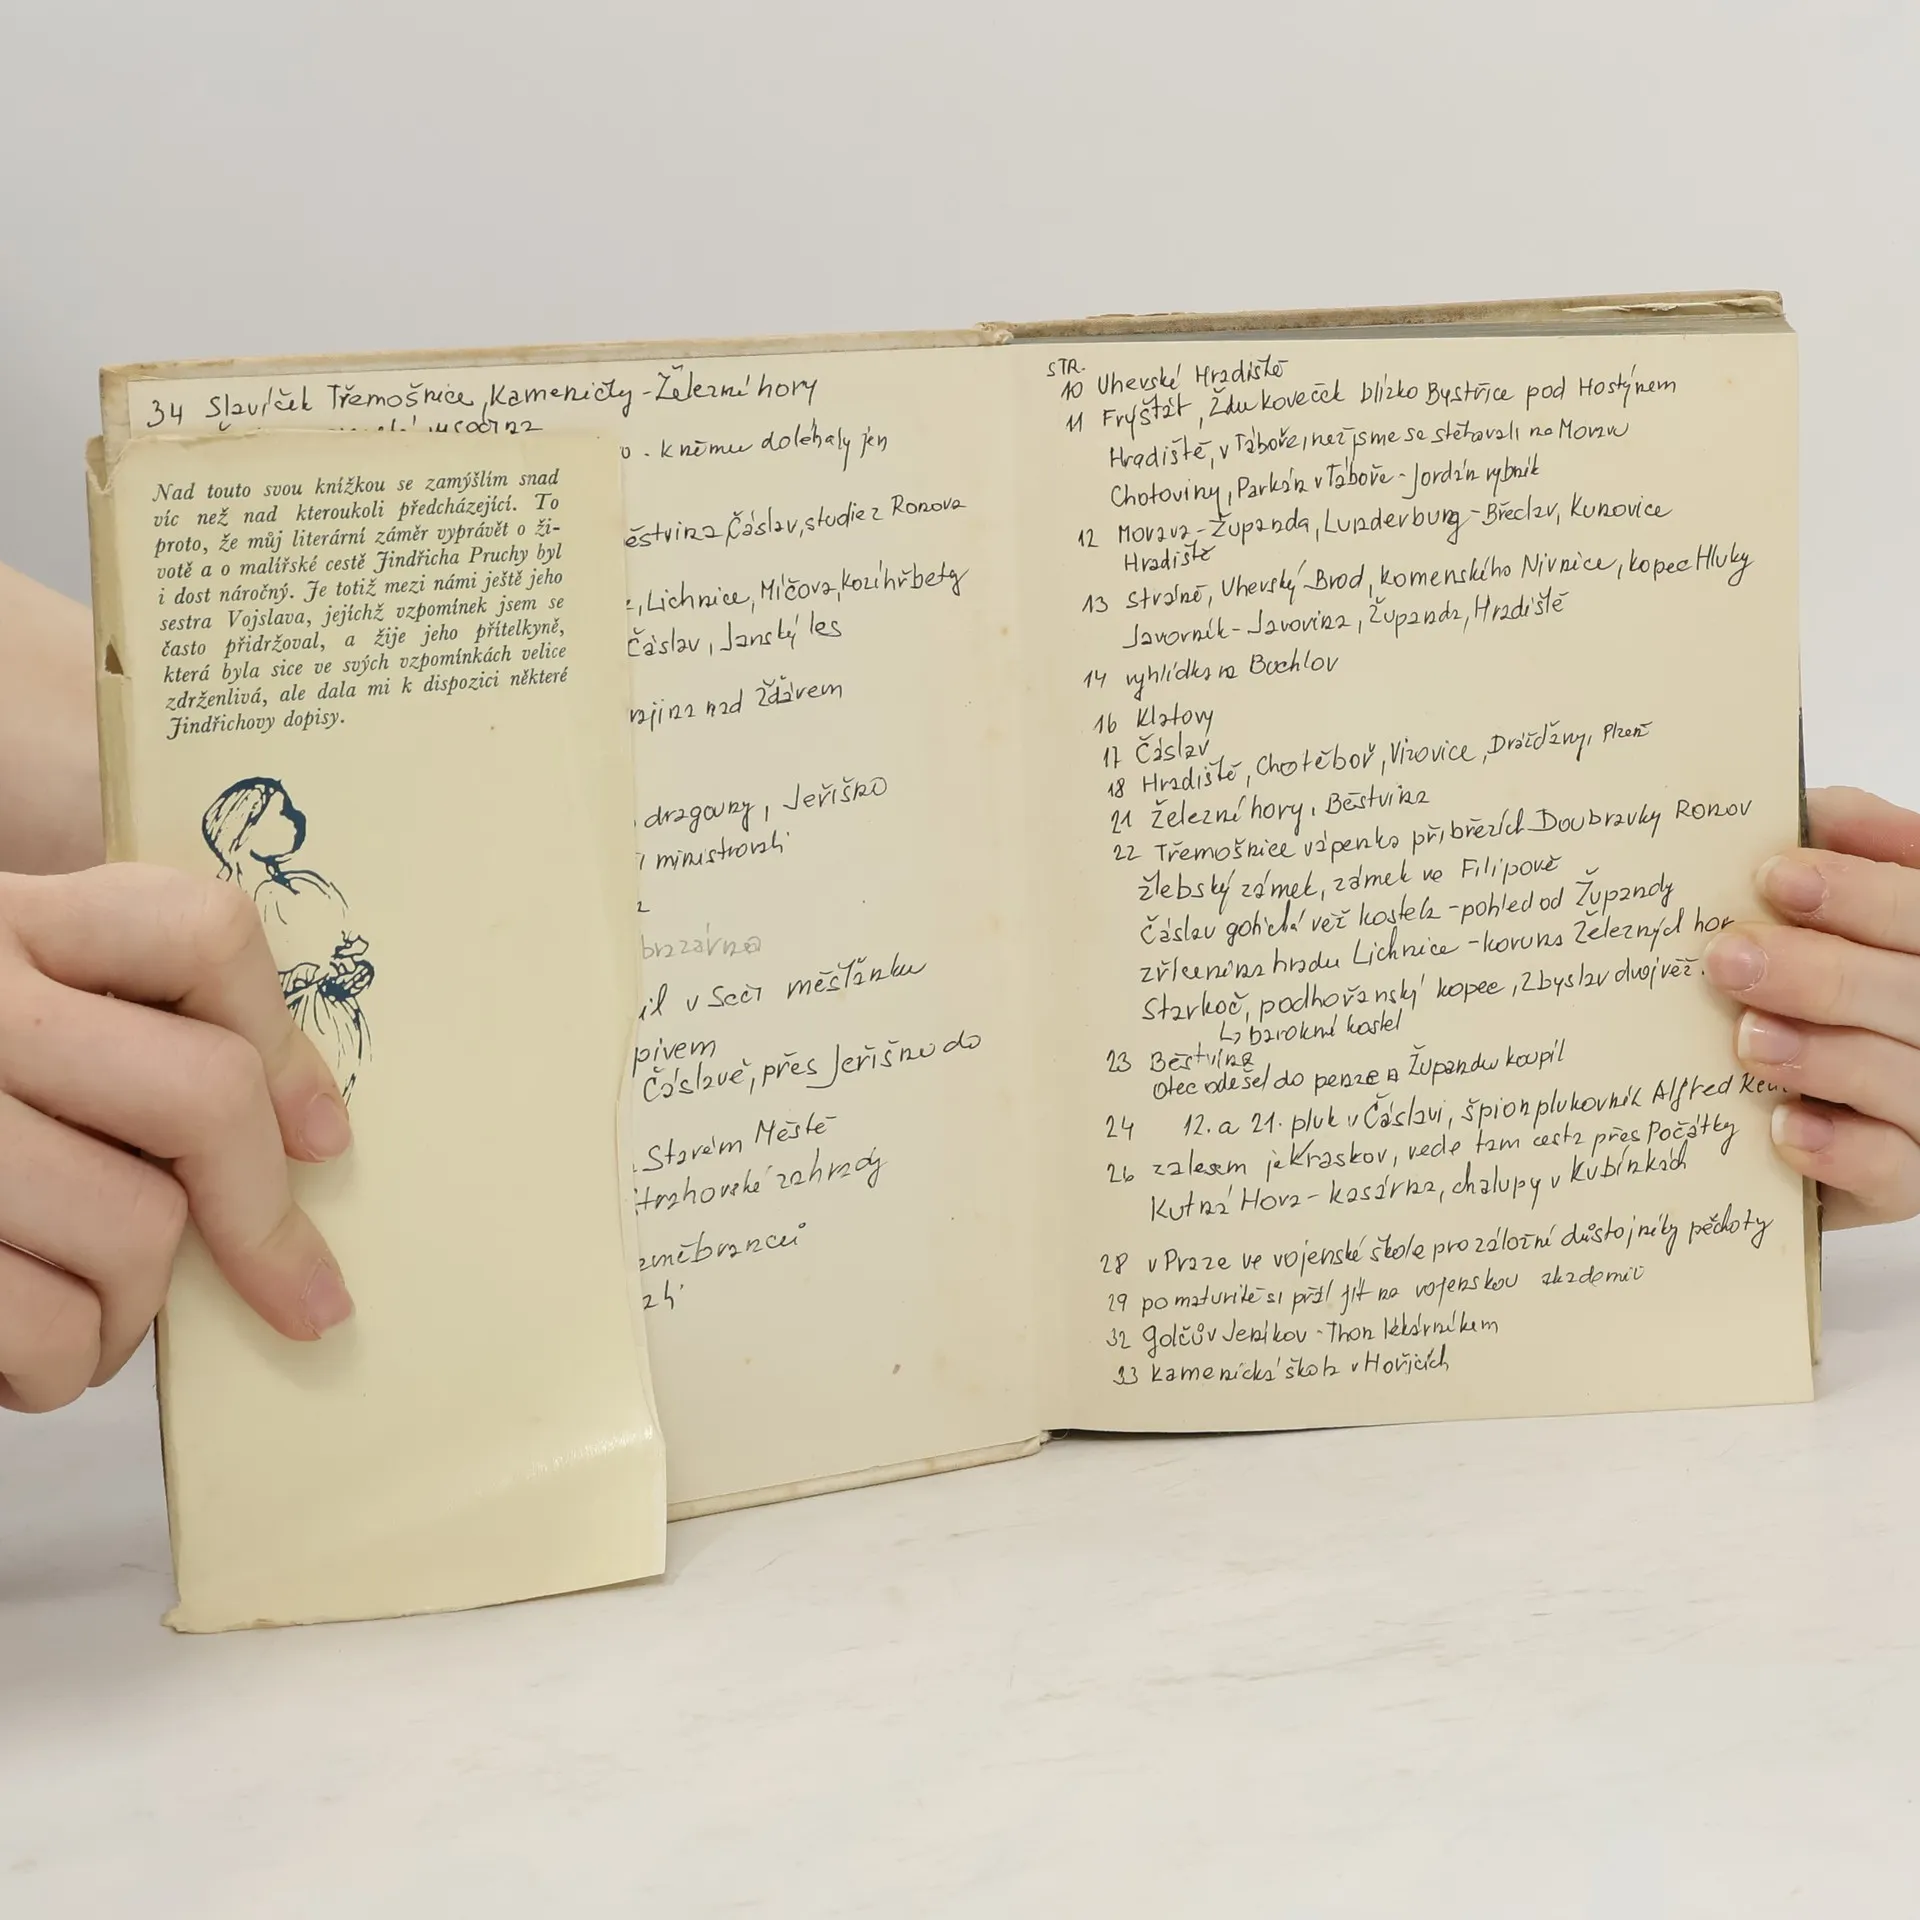 34 Slavíček Třemošnice, Kameničky - Železné hory
. k němu doléhaly jen
Čáslav, studie z Ronova
, Lichnice, Míčova, Kozíhřbety
Čáslav, Janský les
nad Žďárem
dragouny, Jeřišno
ministrovali
v Seči měšťanku
pivem
Čáslavě, přes Jeřišno do
Starém Městě
zahrady
Nad touto svou knížkou se zamýšlím snad
víc než nad kteroukoli předcházející. To
proto, že můj literární záměr vyprávět o ži-
votě a o malířské cestě Jindřicha Pruchy byl
i dost náročný. Je totiž mezi námi ještě jeho
sestra Vojslava, jejíchž vzpomínek jsem se
často přidržoval, a žije jeho přítelkyně,
která byla sice ve svých vzpomínkách velice
zdrženlivá, ale dala mi k dispozici některé
Jindřichovy dopisy.
STR.
10 Uherské Hradiště
11 Fryšták, blízko Bystřice pod Hostýnem
Hradiště, v Táboře, než jsme se stěhovali na Moravu
Chotoviny, Parkán v Táboře - Jordán rybník
12 Morava - Županda, Lunderburg - Břeclav, Kunovice
Hradiště
13 Strání, Uherský Brod, Komenského Nivnice, kopec Hluky
Javorník - Javorina, Županda, Hradiště
14 vyhlídka na Buchlov
16 Klatovy
17 Čáslav
18 Hradiště, Chotěboř, Vizovice, Drážďany, Plzeň
21 Železné hory, Běstvina
22 Třemošnice vápenka při březích Doubravky Ronov
žlebský zámek, zámek ve Filipově
Čáslav gotická věž kostela - pohled od Župandy
zřícenina hradu Lichnice - koruna Železných hor
Starkoč, podhořanský kopec, Zbyslav dvojvěž.
↳ barokní kostel
23 Běstvina
Otec odešel do penze a Župandu koupil
24 12. a 21. pluk v Čáslavi, špion plukovník Alfred
26 za lesem je Kraskov, vede tam cesta přes Počátky
Kutná Hora - kasárna, chalupy v Kubínkách
28 v Praze ve vojenské škole pro záložní důstojníky pěchoty
29 po maturitě si přál jít na vojenskou akademii
32 Golčův Jeníkov - Thon lékárníkem
33 kamenická škola v Hořicích